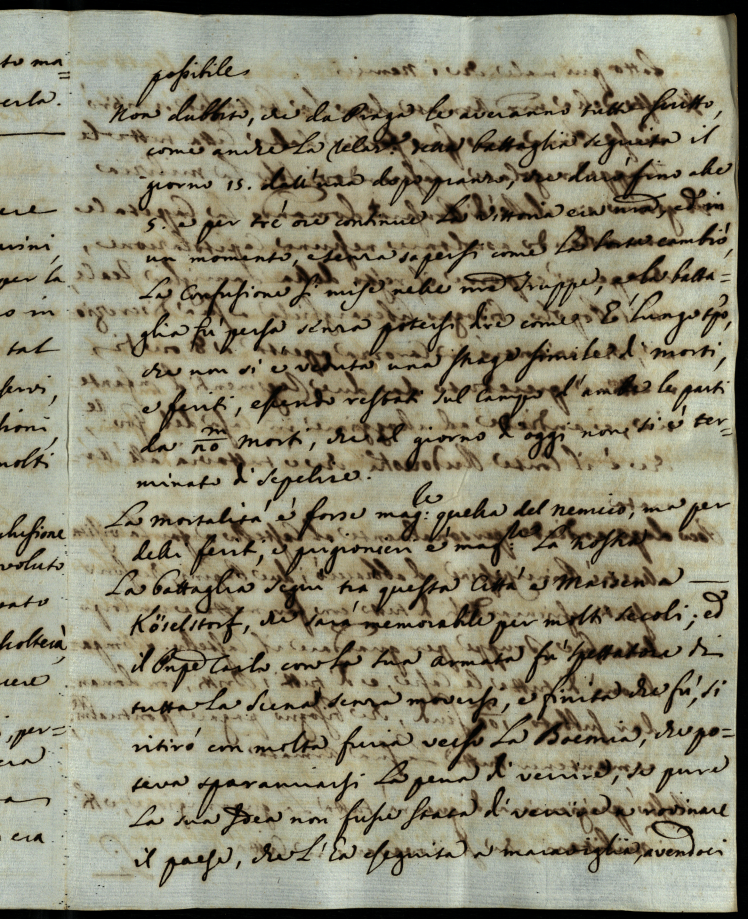 to ma=
possibile
erla.
Non dubbito, che da Praga le averanno tutti scritto,
come anche La relaz.e della battaglia seguita il
giorno 15. dall'una dopo pranzo, che durò fino alle
5. e per tré ore continue La Vittoria era ed in
un momento, e senza sapersi come La Sorte cambiò,
La Confusione si mise nelle Truppe, e la batta=
glia fù persa senza potersi dire come. É Lungo tpo,
che non si é veduta una strage simile di morti,
e feriti, essendo restati sul Campo d'ambe le parti
da morti, che al giorno d'oggi non si é ter=
minato di sepelire.
La mortalità é forse mag:le quella del nemico, ma per
delli ferit, e prigionieri é mag:le La nostra
La battaglia seguì tra questa Città e Maissena
Köselstorf, che sarà memorabile per molti secoli; ed
il Pnpe Carlo con La sua armata fù spettatore di
tutta La Scena senza moversi, e finita che fù, si
ritirò con molta furia verso La Boemia, che po=
teva sparamiarsi La pena di venire, se pure
La sua Idea non fusse stata di venire a rovinare
il paese, che L'ha eseguita a maraviglia, avendoci
ere
vini,
per la
o in
tal
servi,
molti
clusione
voluto
per=
era